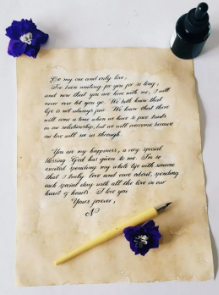 To my one and only love,
I've been waiting for you for so long,
and now that you are here with me, I will
never ever let you go. We both know that
life is not always fair. We know that there
will come a time when we have to face trials
in our relationship, but we will overcome because
our love will see us through.
You are my happiness, a very special
blessing God has given to me. I'm so
excited spending my whole life with someone
that I truly love and care about, spending
each special day with all the love in our
heart of hearts. I love you.
Yours forever,
N